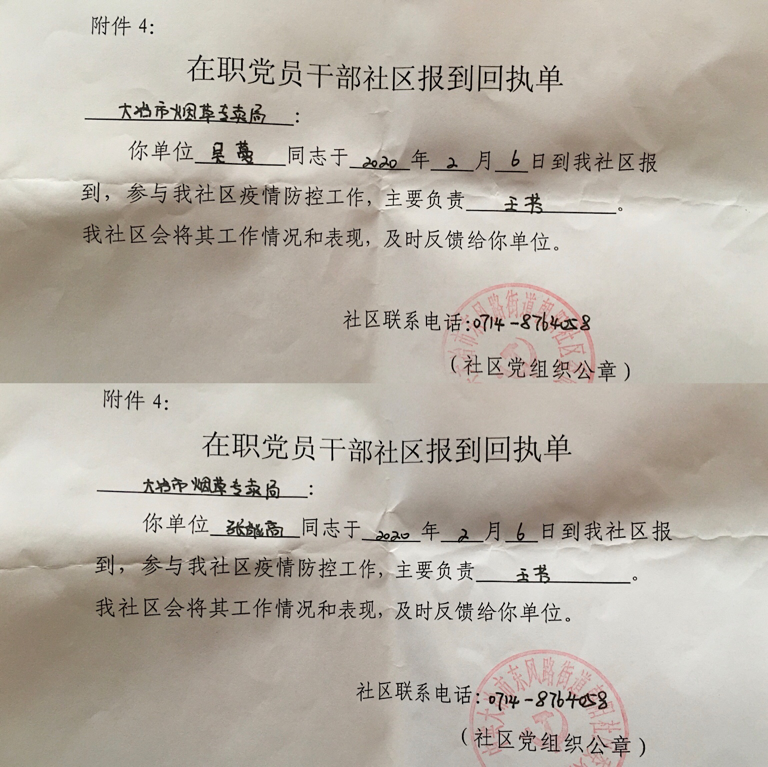 附件 4：
在职党员干部社区报到回执单
大冶市烟草专卖局：
你单位 吴 同志于 2020 年 2 月 6 日到我社区报
到，参与我社区疫情防控工作，主要负责 。
我社区会将其工作情况和表现，及时反馈给你单位。
社区联系电话：0714-8764058
（社区党组织公章）
附件 4：
在职党员干部社区报到回执单
大冶市烟草专卖局：
你单位 张 高 同志于 2020 年 2 月 6 日到我社区报
到，参与我社区疫情防控工作，主要负责 。
我社区会将其工作情况和表现，及时反馈给你单位。
社区联系电话：0714-8764058
（社区党组织公章）